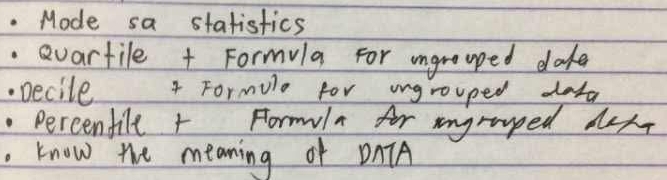 • Mode sa statistics
• Quartile + Formula for ungrouped data
• Decile + Formula for ungrouped data
• Percentile + Formula for ungrouped data
• Know the meaning of DATA